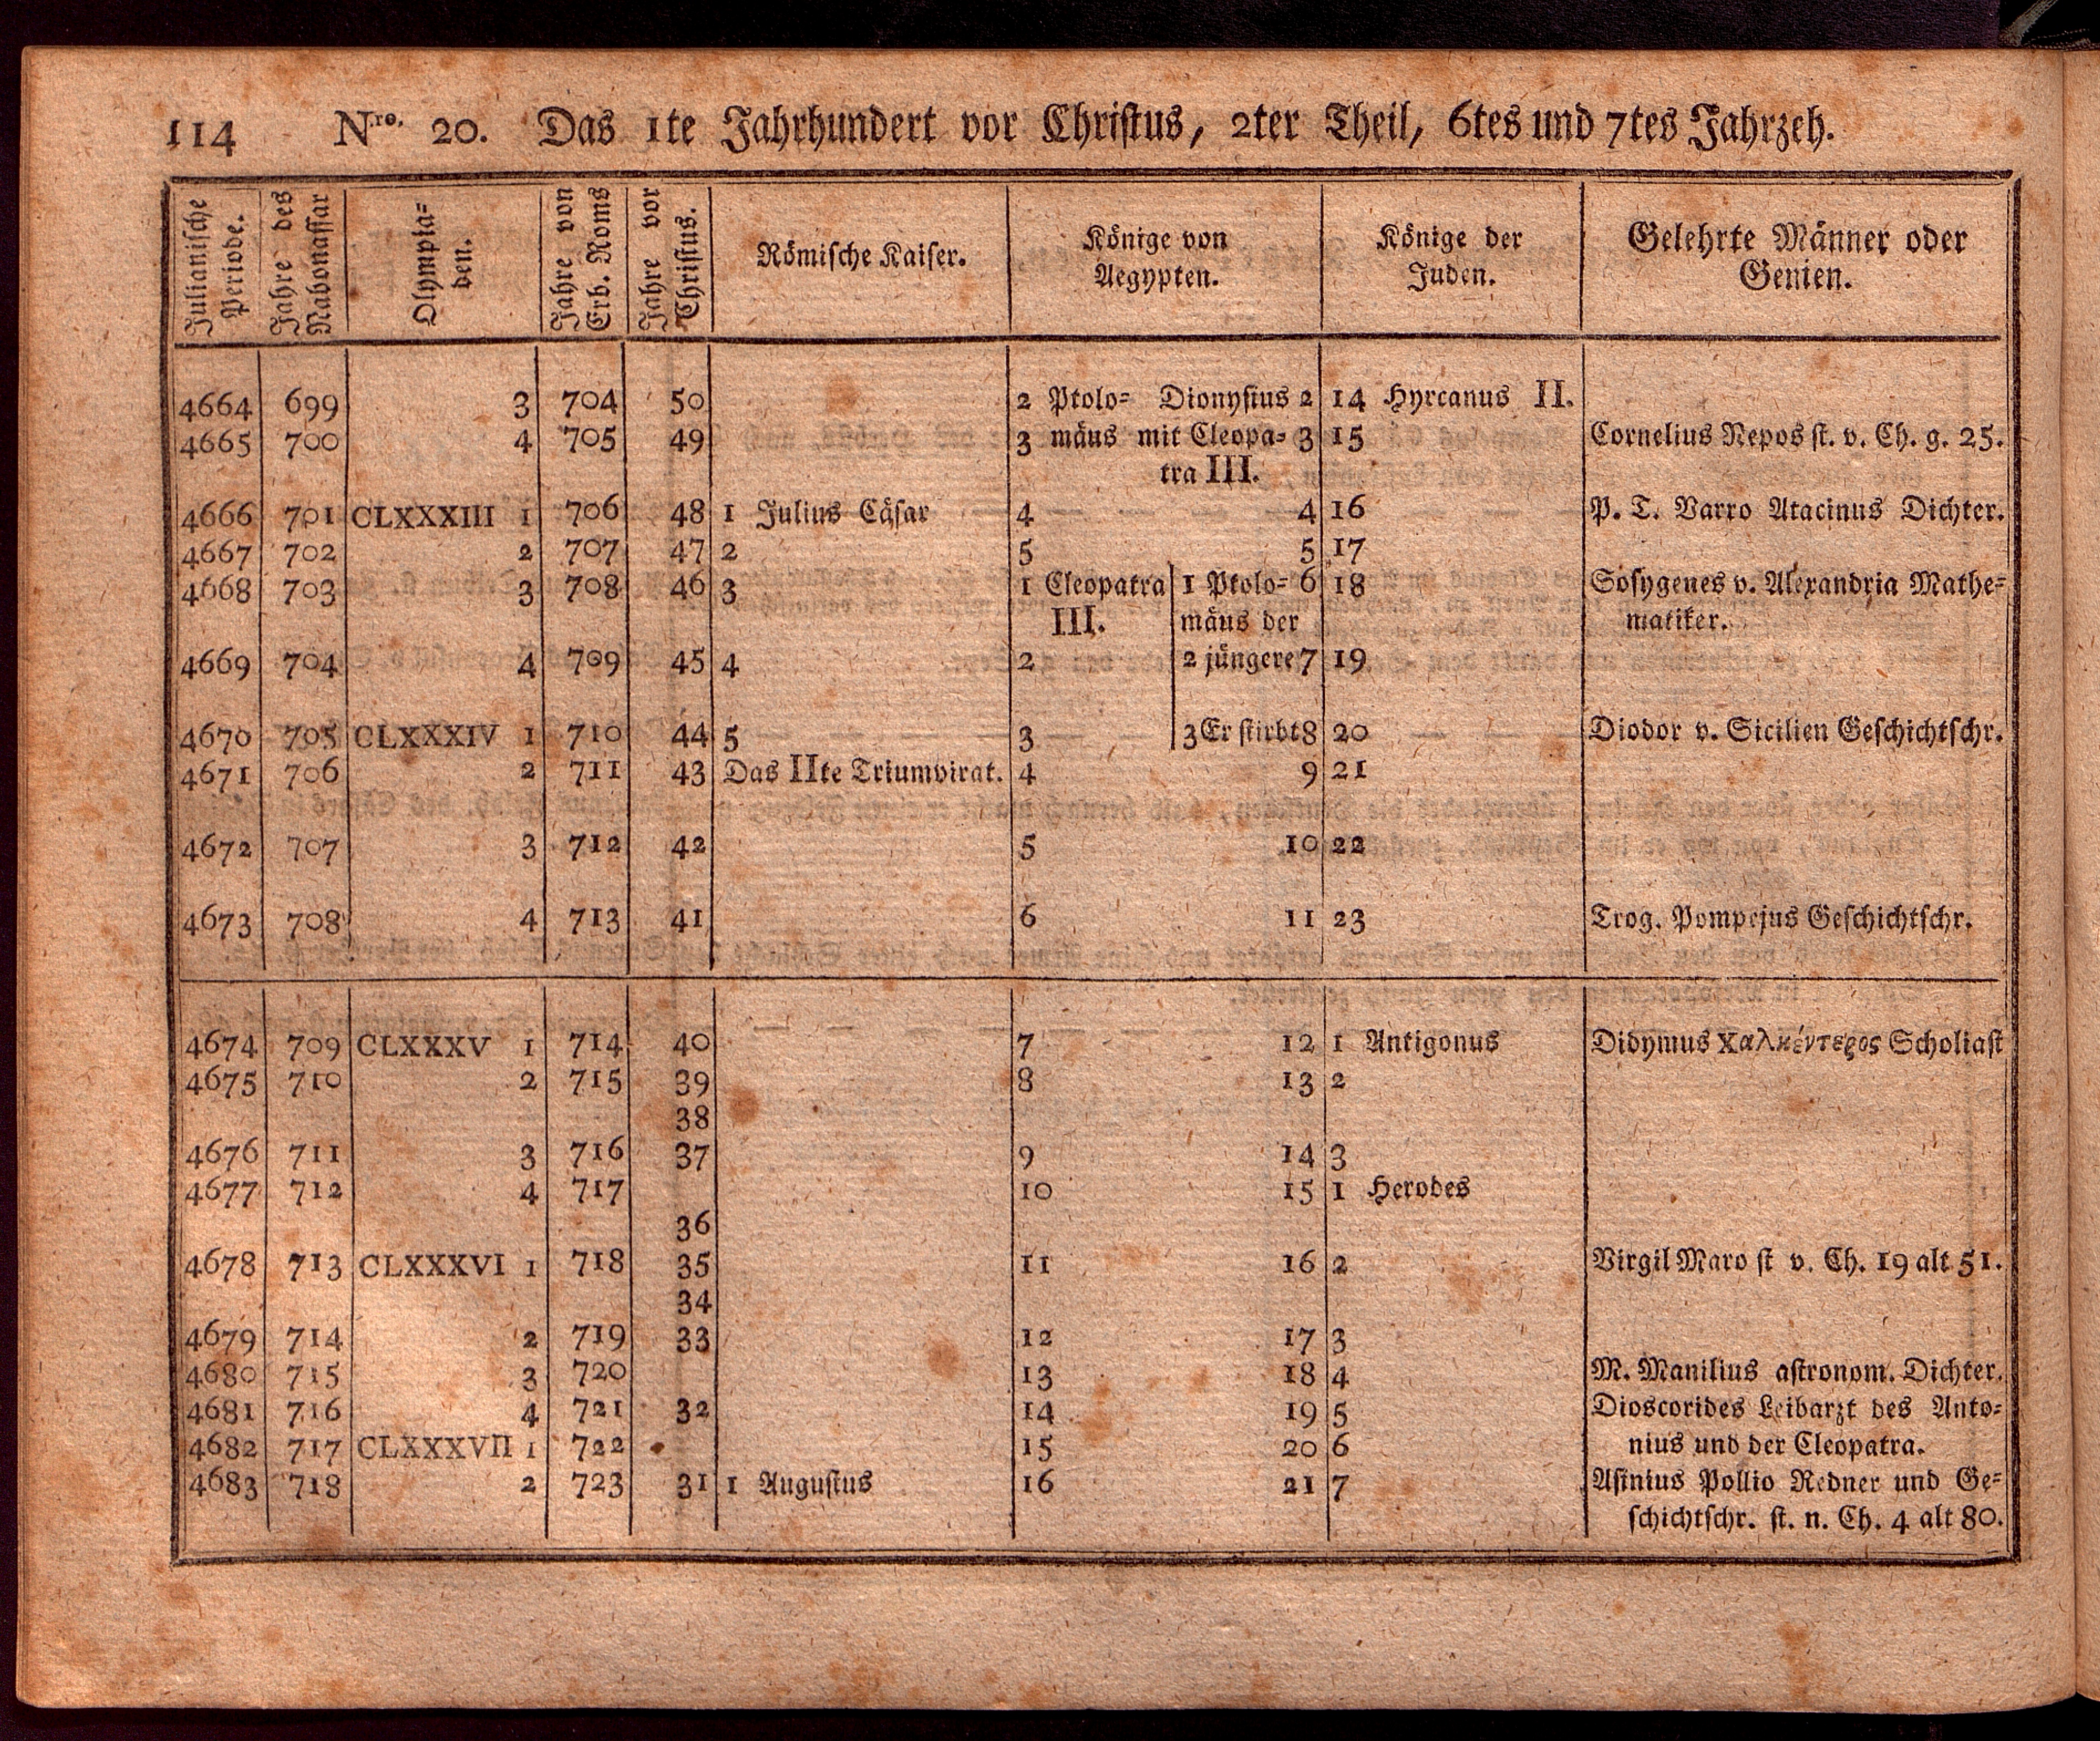 114 Nro. 20. Das 1te Jahrhundert vor Christus, 2ter Theil, 6tes und 7tes Jahrzeh.
Julianische Periode. Jahre des Nabonassar Olympia= den. Jahre von Erb. Roms Jahre vor Christus. Römische Kaiser. Könige von Aegypten. Könige der Juden. Gelehrte Männer oder Genien.
4664 699 3 704 50 2 Ptolo= Dionysius 2 14 Hyrcanus II.
4665 700 4 705 49 3 mäus mit Cleopa= 3 15 Cornelius Nepos st. v. Ch. g. 25.
tra III.
4666 701 CLXXXIII 1 706 48 1 Julius Cäsar 4 4 16 P. T. Varro Atacinus Dichter.
4667 702 2 707 47 2 5 5 17
4668 703 3 708 46 3 1 Cleopatra 1 Ptolo= 6 18 Sosygenes v. Alexandria Mathe=
III. mäus der matiker.
4669 704 4 709 45 4 2 2 jüngere 7 19
4670 705 CLXXXIV 1 710 44 5 3 3 Er stirbt 8 20 Diodor v. Sicilien Geschichtschr.
4671 706 2 711 43 Das IIte Triumvirat. 4 9 21
4672 707 3 712 42 5 10 22
4673 708 4 713 41 6 11 23 Trog. Pompejus Geschichtschr.
4674 709 CLXXXV 1 714 40 7 12 1 Antigonus Didymus Χαλκέντερος Scholiast
4675 710 2 715 39 8 13 2
38
4676 711 3 716 37 9 14 3
4677 712 4 717 10 15 1 Herodes
36
4678 713 CLXXXVI 1 718 35 11 16 2 Virgil Maro st v. Ch. 19 alt 51.
34
4679 714 2 719 33 12 17 3
4680 715 3 720 13 18 4 M. Manilius astronom. Dichter.
4681 716 4 721 32 14 19 5 Dioscorides Leibarzt des Anto=
4682 717 CLXXXVII 1 722 15 20 6 nius und der Cleopatra.
4683 718 2 723 31 1 Augustus 16 21 7 Asinius Pollio Redner und Ge=
schichtschr. st. n. Ch. 4 alt 80.